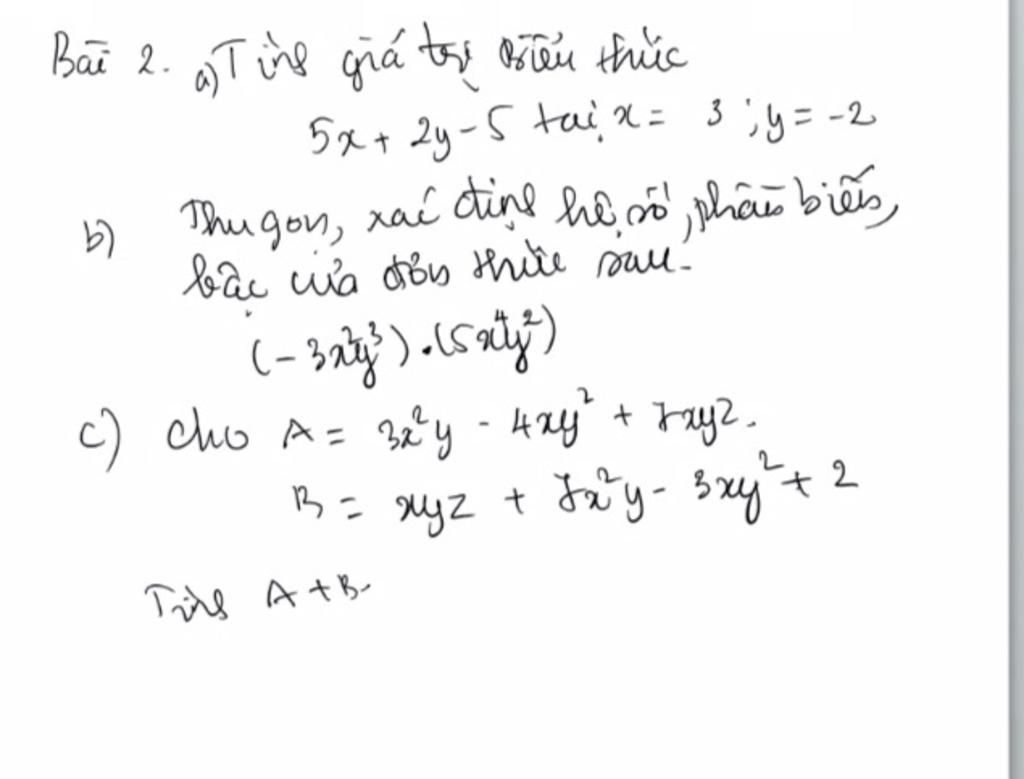 Bài 2. a) Tính giá trị biểu thức
5x + 2y - 5 tại x = 3 ; y = -2
b) Thu gọn, xác định hệ số, phần biến,
bậc của đơn thức sau.
(-3x²y³).(5x⁴y²)
c) Cho A = 3x²y - 4xy² + 7xyz.
B = xyz + 7x²y - 3xy² + 2
Tính A + B.